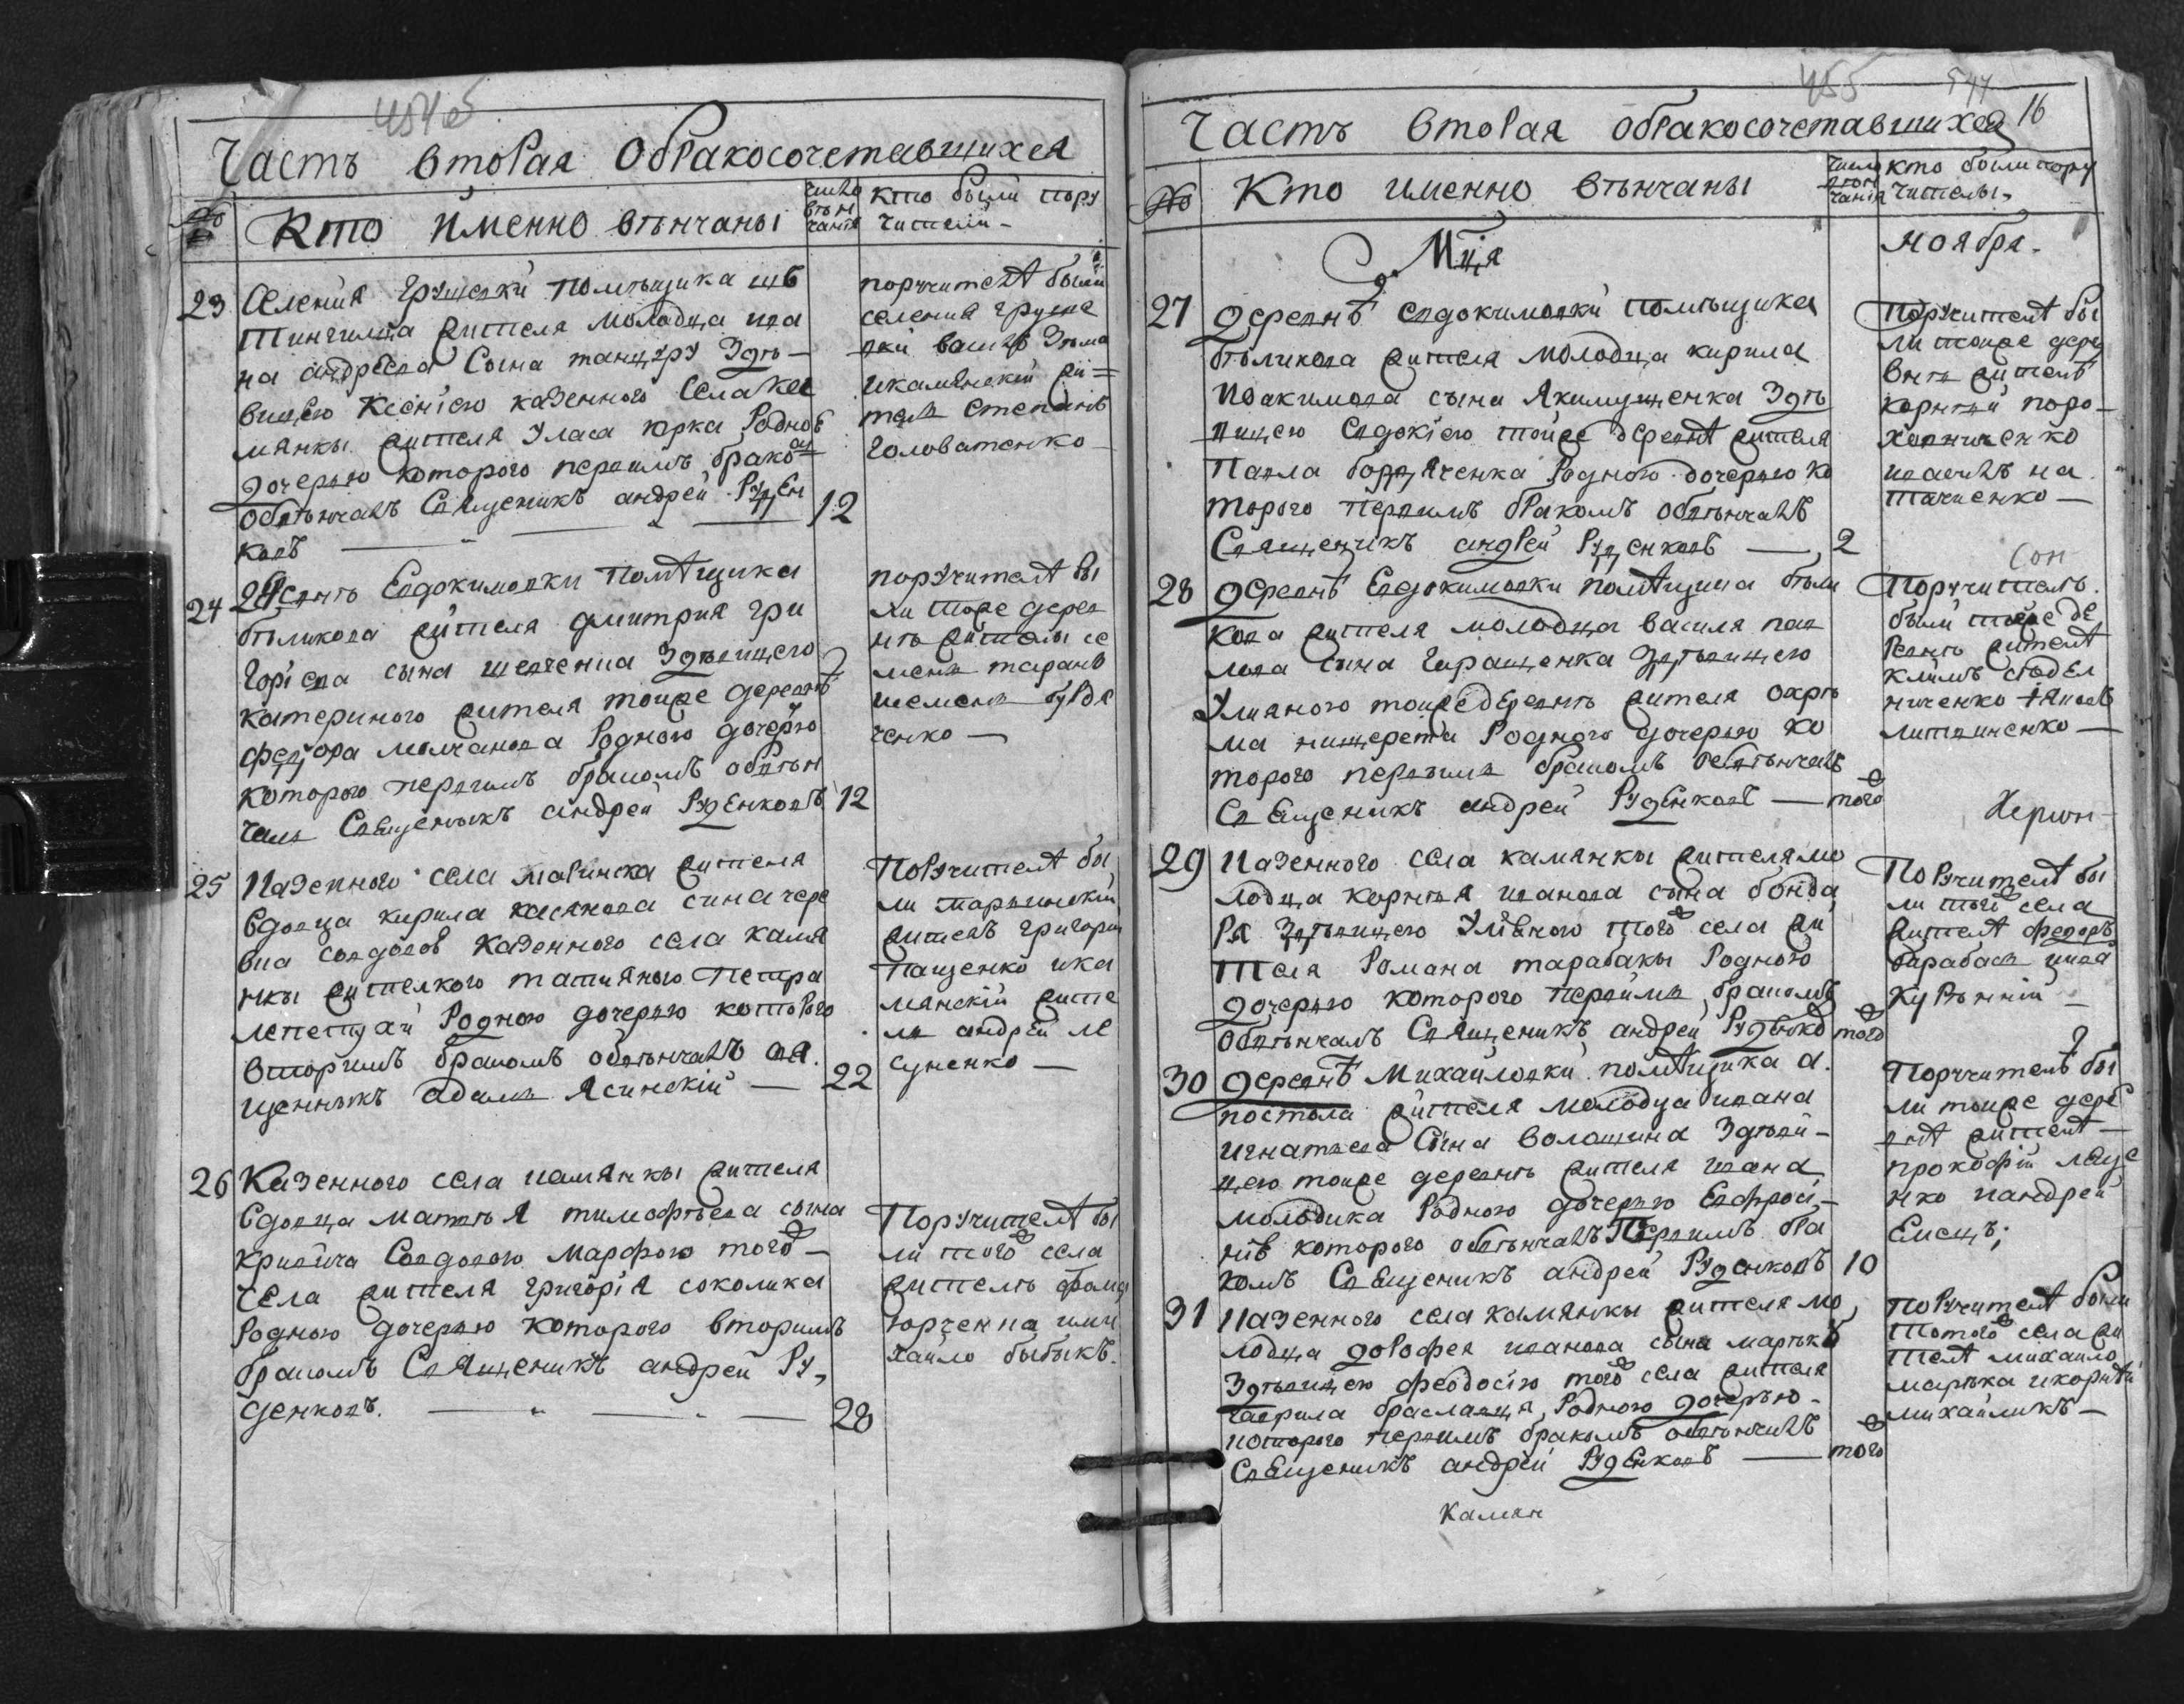 454об
Часть вторая обракосочетавшихся
№
Кто именно вѣнчаны
число вѣнчанія
кто были пору
чители
23
Селения Грушевки помѣщика шт
Тингилна жителя молодца ива
на андрѣева Сына танцуру Здѣ-
вицею Ксенiею казенного Села Ка
мянки жителя Уласа юрка Родною
дочерью которого первимъ бракомъ
обвѣнчалъ Священикъ андрей Руден
ковъ
12
поручителѣ были
селения груше
вки
икамянскiй жи=
тель Степанъ
Головатенко
24
деревнѣ Евдокимовки помѣщика
бѣликова жителя дмитрия гри
горiева сына шевченка Здѣвицею
катериною жителя тоиже деревнѣ
федора молчанова Родною дочерю
которого первимъ бракомъ обвѣн
чалъ Священикъ андрей Руденковъ
12
поручителѣ бы
ли тоиже дерев
нѣ жителы се
менъ таранъ
исеменъ
ченко
25
Казенного села марьинска жителя
вдовца кирила касянова сина чере
вка совдовою Казенного села камя
нки жителкого татияною Петра
лепетхи Родною дочерью которого
вторимъ бракомъ обвѣнчалъ свя
щенникъ адамъ Ясинскiй
22
Поручителѣ бы
ли марьинскiй
житель григорий
Пащенко ика
мянскiй жите
ль андрей ле
суненко
26
Казенного села камянки жителя
вдовца матвѣя тимофѣева сына
кривича Совдовою марфою того
села жителя григорiя соколика
Родною дочерью которого вторимъ
бракомъ Священикъ андрей Ру
денковъ.
28
Поручителѣ бы
ли того села
жителѣ фома
юрченка ими
хайло бибикъ.
455
544
16
Часть вторая обракосочетавшихся
№
Кто именно вѣнчаны
число вѣнчанiя
кто были пору
чителы
Мця
ноября
27
деревнѣ евдокимовки помѣщика
бѣликова жителя молодца кирила
иоакимова сына Якимущенка Здѣ
вицею Евдокiею тоиже деревнѣ жителя
Павла Родною дочерью ко
торого первимъ бракомъ обвѣнчалъ
Священикъ андрей Руденковъ
2
Поручителѣ бы
ли тоиже дере
внѣ жителѣ
корнѣй поро-
хивниченко
на
тащенко
28
деревнѣ Евдокимовки помѣщика бѣли
кова жителя молодца василя пав
лова сына Геращенка Здѣвицею
Улияною тоижедеревнѣ жителя охрѣ
ма нищерета Родною дочерью ко
торого первимъ бракомъ обвѣнчалъ
Священикъ андрей Руденковъ
того
Сон
Поручителѣ
были тоиже де
ревнѣ жителѣ
климъ
ниченко Яковъ
литвиненко
29
Казенного села камянки жителя мо
лодца корнѣя иванова сына бонда
ря Здѣвицею Улияною того села жи
теля Романа тарабаки Родною
дочерью которого первимъ бракомъ
обвѣнчалъ Священикъ андрей Руденко
того
Херсон
Поручителѣ бы
ли того села
жителѣ федоръ
барабаш
Курѣннiй
30
деревнѣ Михайловки помѣщика а.
постола жителя молодца ивана
игнатьева Сына волошина Здѣви-
цею тоиже деревнѣ жителя ивана
молодика Родною дочерью Евфроси-
нiѣ которого обвѣнчалъ Первимъ бра
комъ Священикъ андрей Руденковъ
10
Поручителѣ бы
ли тоиже дере
внѣ жителѣ
прокофiй леще
нко иандрей
Елецъ;
31
Казенного села камянки жителя мо
лодца дорофея иванова сына марьки
Здѣвицею феодосiею того села жителя
гаврила браславця Родною дочерью
которого первимъ бракомъ обвѣнчалъ
Священикъ андрей Руденковъ
того
Поручителѣ были
тотого села жи
телѣ михаило
марька икорнѣй
михайликъ
Камян